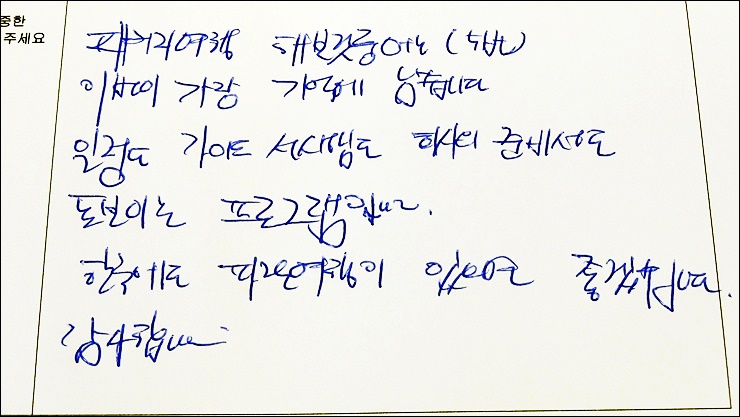 중한
주세요
패키지여행 해본것중에는 (5번)
이번이 가장 기억에 남습니다
일정도 가이드 선생님도 회사의 준비성도
돋보이는 프로그램입니다.
한국에도 이런여행이 있으면 좋겠습니다.
감사합니다